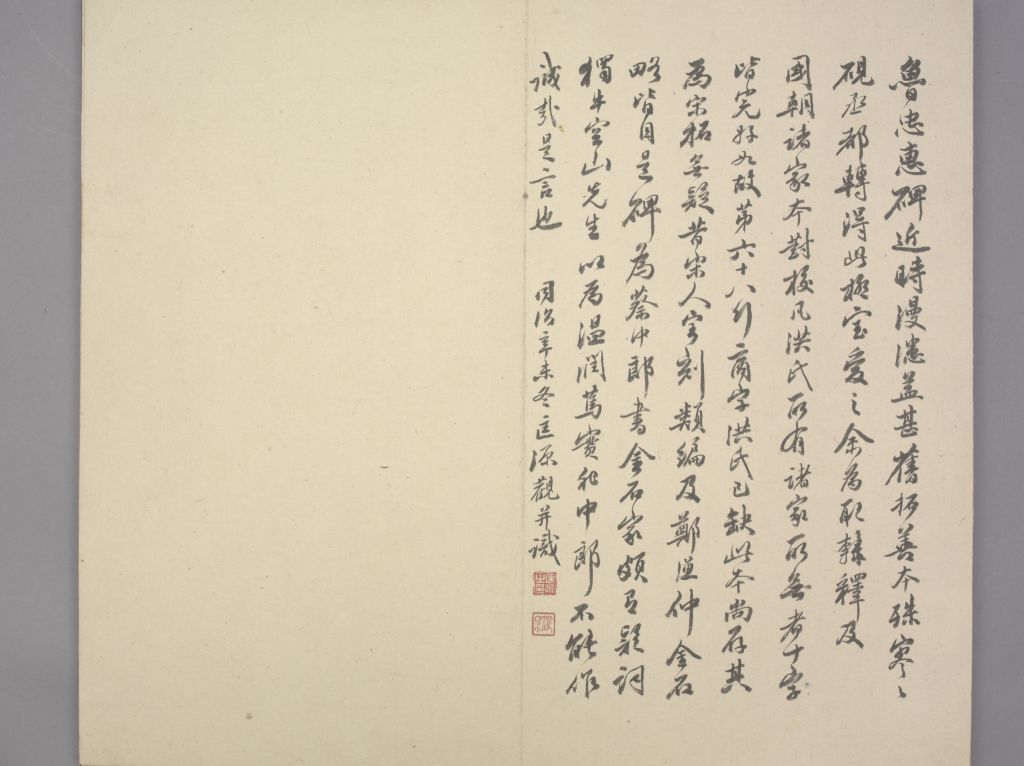 魯忠惠碑近時漫漶益甚舊拓善本殊寥〻
硯丞都轉得此極宝愛之余為取隸釋及
國朝諸家本對校凡洪氏所有諸家所無者十字
皆完好如故第六十八行商字洪氏已缺此本尚存其
為宋拓無疑昔宋人字刻類編及鄭漁仲金石
略皆目是碑為蔡中郎書金石家頗有疑詞
獨牛空山先生以為溫潤篤實非中郎不能作
誠哉是言也 同治辛未冬匡源觀并識